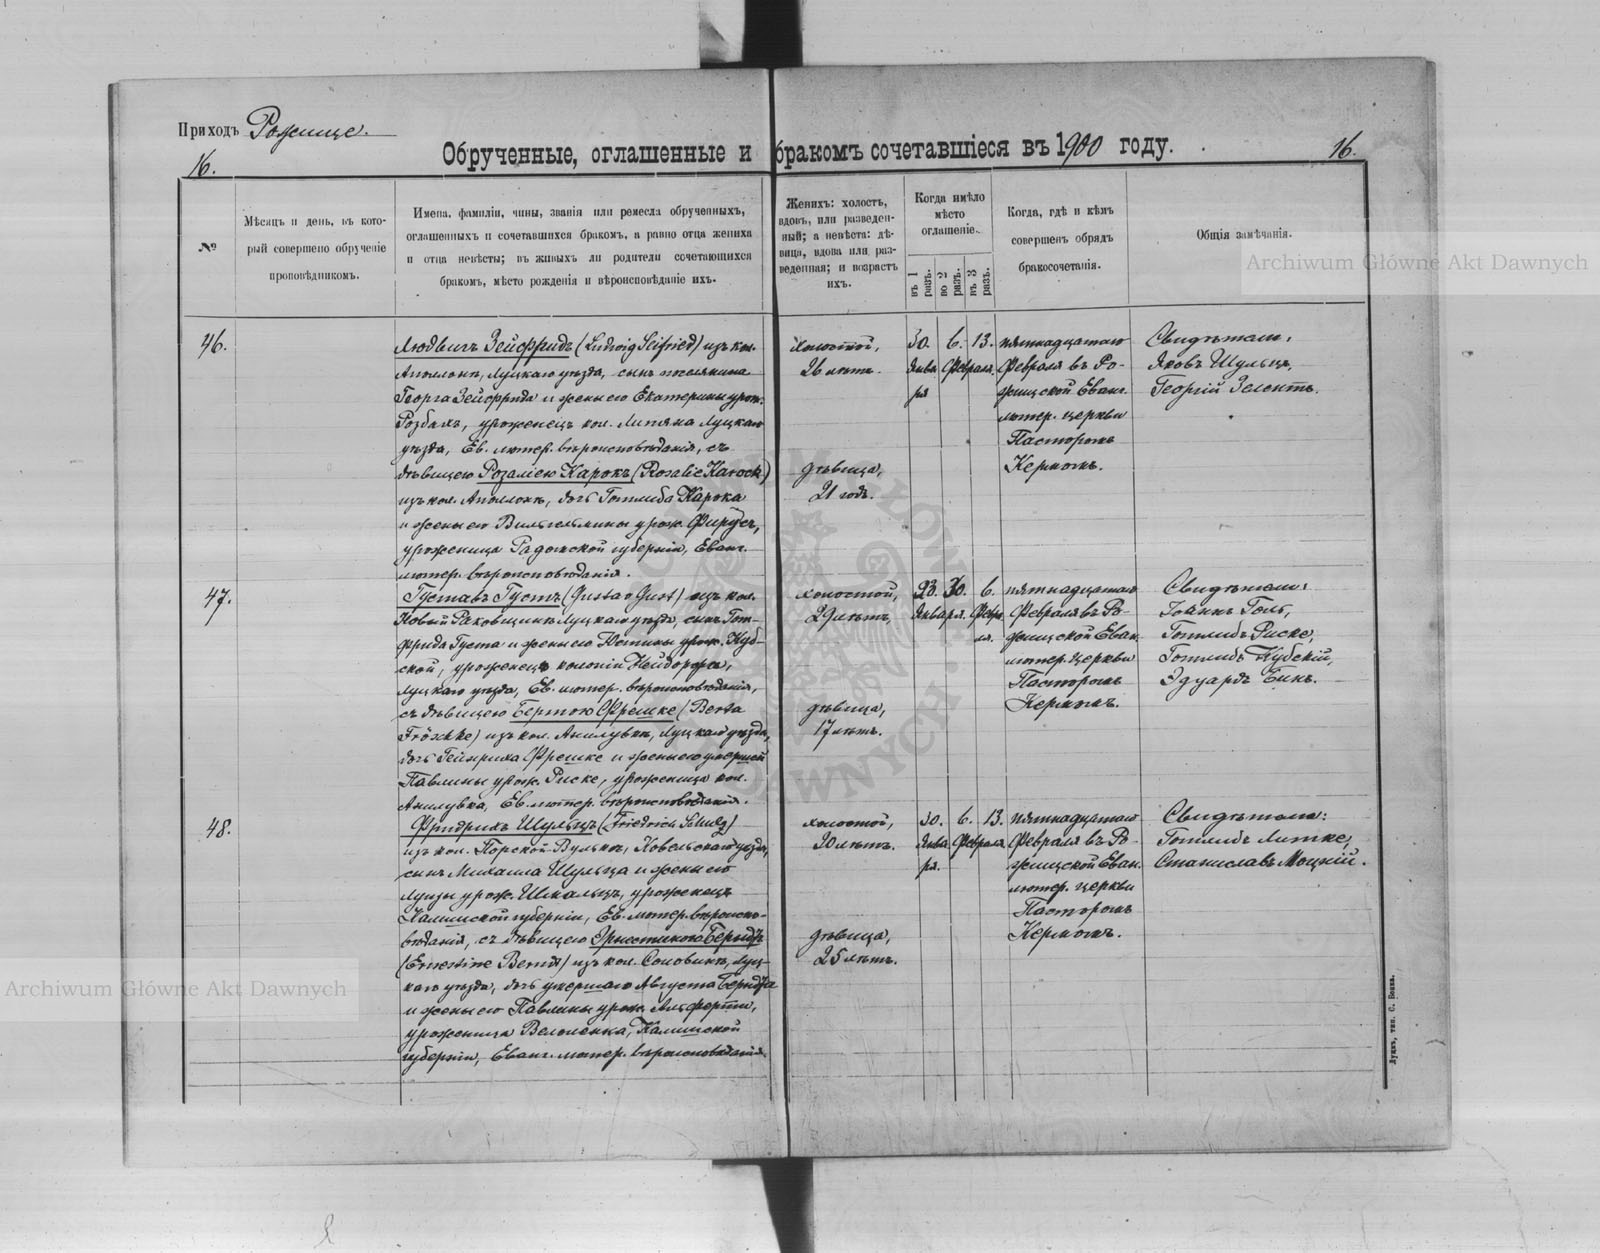 Приходъ Рожище.
16.
Обрученные, оглашенные и бракомъ сочетавшіеся въ 1900 году.
16.
№
Мѣсяцъ и день, въ кото-
рый совершено обрученіе
проповѣдникомъ.
Имена, фамиліи, чины, званія или ремесла обрученныхъ,
оглашенныхъ и сочетавшихся бракомъ, а равно отца жениха
и отца невѣсты; въ живыхъ ли родители сочетающихся
бракомъ, мѣсто рожденія и вѣроисповѣданіе ихъ.
Женихъ: холостъ,
вдовъ, или разведен-
ный; а невѣста: дѣ-
вица, вдова или раз-
веденная; и возрастъ
ихъ.
Когда имѣло
мѣсто
оглашеніе.
въ 1 разъ.
во 2 разъ.
въ 3 разъ.
Когда, гдѣ и кѣмъ
совершенъ обрядъ
бракосочетанія.
Общія замѣчанія.
Archiwum Główne Akt Dawnych
46.
Людвигъ Зейфридъ (Ludwig Seifried) изъ кол.
Аполлонк, Луцкаго уѣзда, сынъ поселянина
Георга Зейфрида и жены его Екатерины урож.
уроженецъ кол. Луцкаго
уѣзда, Ев. лютер. вѣроисповѣданія, съ
дѣвицею Розаліею Карокъ (Rosalie Karock)
изъ кол. Аполлонк, дочь Готлиба Карока
и жены его Вильгельмины урож.
уроженица Радомской губерніи, Еванг.
лютер. вѣроисповѣданія.
холостой,
26 лѣтъ.
дѣвица,
21 годъ.
30. 6. 13.
Янва Февраля.
ря
пятнадцатаго
Февраля въ Ро-
жищской Еванг.
лютер. церкви
Пасторомъ
Кермомъ.
Свидѣтели:
Яковъ Шульцъ,
Георгій
47.
Густавъ Густъ (Gustav Gust) изъ кол.
Новый Раковщикъ Луцкаго уѣзда, сынъ Гот-
фрида Густа и жены его Юстины урож. Куб-
ской, уроженецъ колоніи Нейдорфъ,
Луцкаго уѣзда, Ев. лютер. вѣроисповѣданія,
съ дѣвицею Бертою Фрешке (Berta
Fröschke) изъ кол. Анилувка, Луцкаго уѣзда,
дочь Гейнриха Фрешке и жены его умершей
Павлины урож. Риске, уроженица кол.
Анилувка, Ев. лютер. вѣроисповѣданія.
холостой,
29 лѣтъ,
дѣвица,
17 лѣтъ.
23. 30. 6.
Января. Февра
ля.
пятнадцатаго
Февраля въ Ро-
жищской Еван.
лютер. церкви
Пасторомъ
Кермомъ.
Свидѣтели:
Готлибъ Риске,
Готлибъ Кубскій,
Эдуардъ
48.
Фридрихъ Шульцъ (Friedrich Schulz)
изъ кол. Порской-Вулькъ, Ковельскаго уѣзда,
сынъ Михаила Шульца и жены его
Луизы урож. Шмальцъ, уроженецъ
Калишской губерніи, Ев. лютер. вѣроиспо-
вѣданія, съ дѣвицею Эрнестиною Берндтъ
(Ernestine Berndt) изъ кол. Луц-
каго уѣзда, дочь умершаго Августа Берндта
и жены его Павлины урож.
уроженица Калишской
губерніи, Еванг. лютер. вѣроисповѣданія.
холостой,
20 лѣтъ.
дѣвица,
25 лѣтъ.
30. 6. 13.
Янва Февраля.
ря.
пятнадцатаго
Февраля въ Ро-
жищской Еван.
лютер. церкви
Пасторомъ
Кермомъ.
Свидѣтели:
Готлибъ Литке,
Станиславъ Моцкій.
Archiwum Główne Akt Dawnych
Луцкъ, тип. С. Бонка.